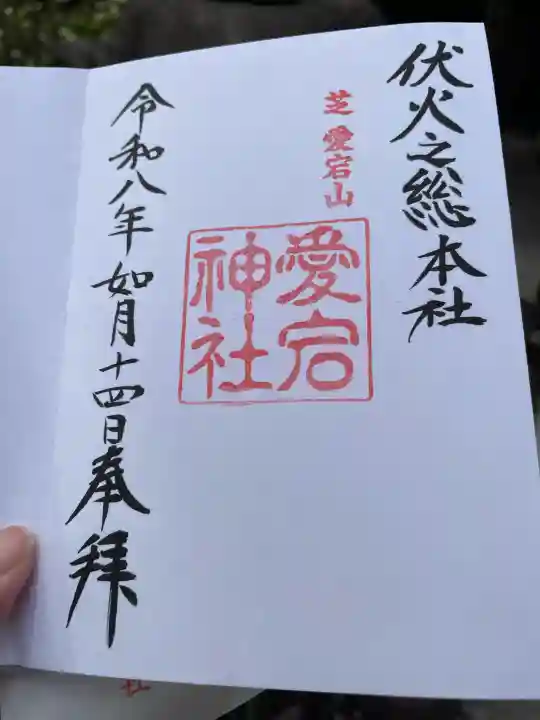 伏火之総本社
芝愛宕山
愛宕
神社
令和八年如月十四日奉拝
社